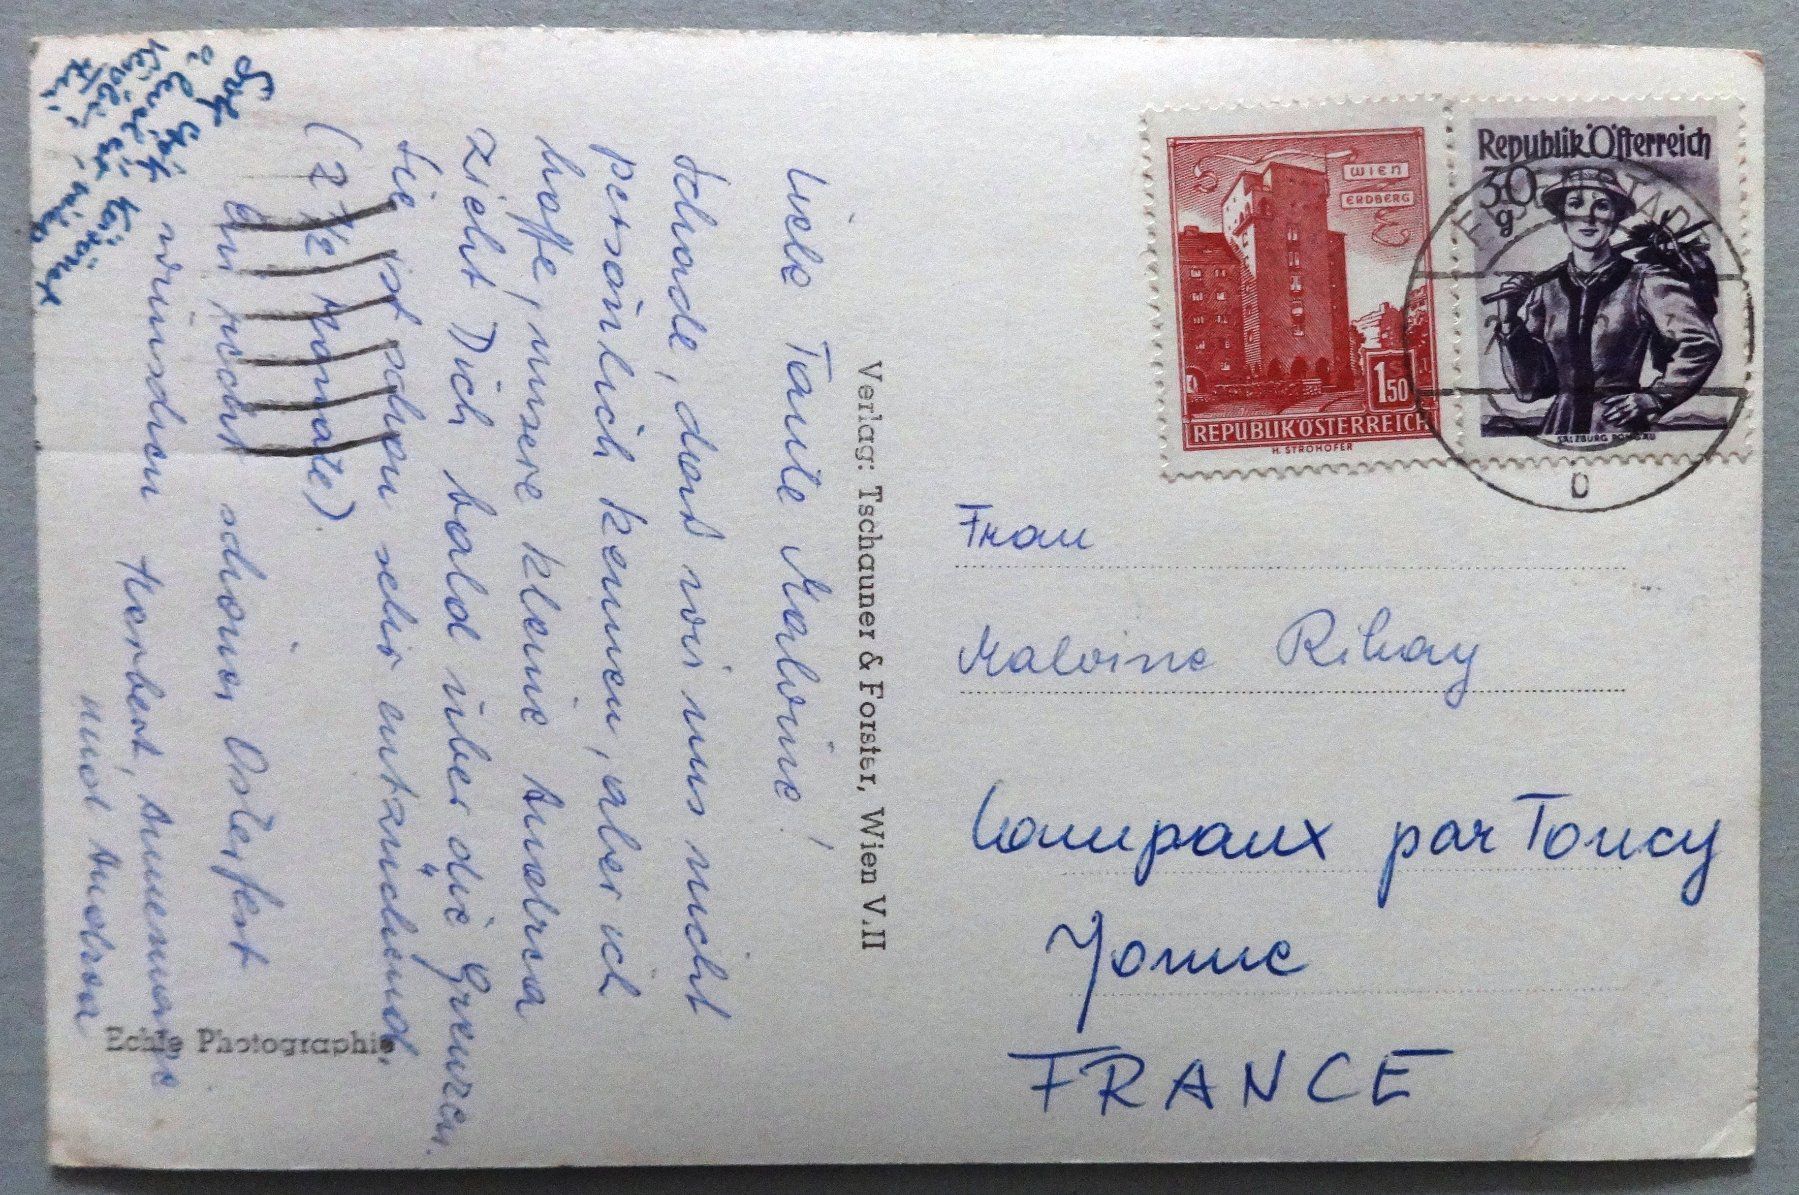 Liebe Tante Malvine!
Schade, daß wir uns nicht
persönlich kennen, aber ich
hoffe, unsere kleine Andrea
zieht Dich bald über die Grenzen.
Sie ist schon sehr entzückend.
(2 1/2 Monate)
Ein recht schönes Osterfest
wünschen Herbert, Annemarie
und Andrea
Echte Photographie
Verlag: Tschauner & Forster, Wien V.II
WIEN
ERDBERG
1 50
REPUBLIK ÖSTERREICH
H. STROHOFER
Republik Österreich
30
g
SALZBURG PONGAU
Frau
Malvine Rihay
par Toucy
Yonne
FRANCE